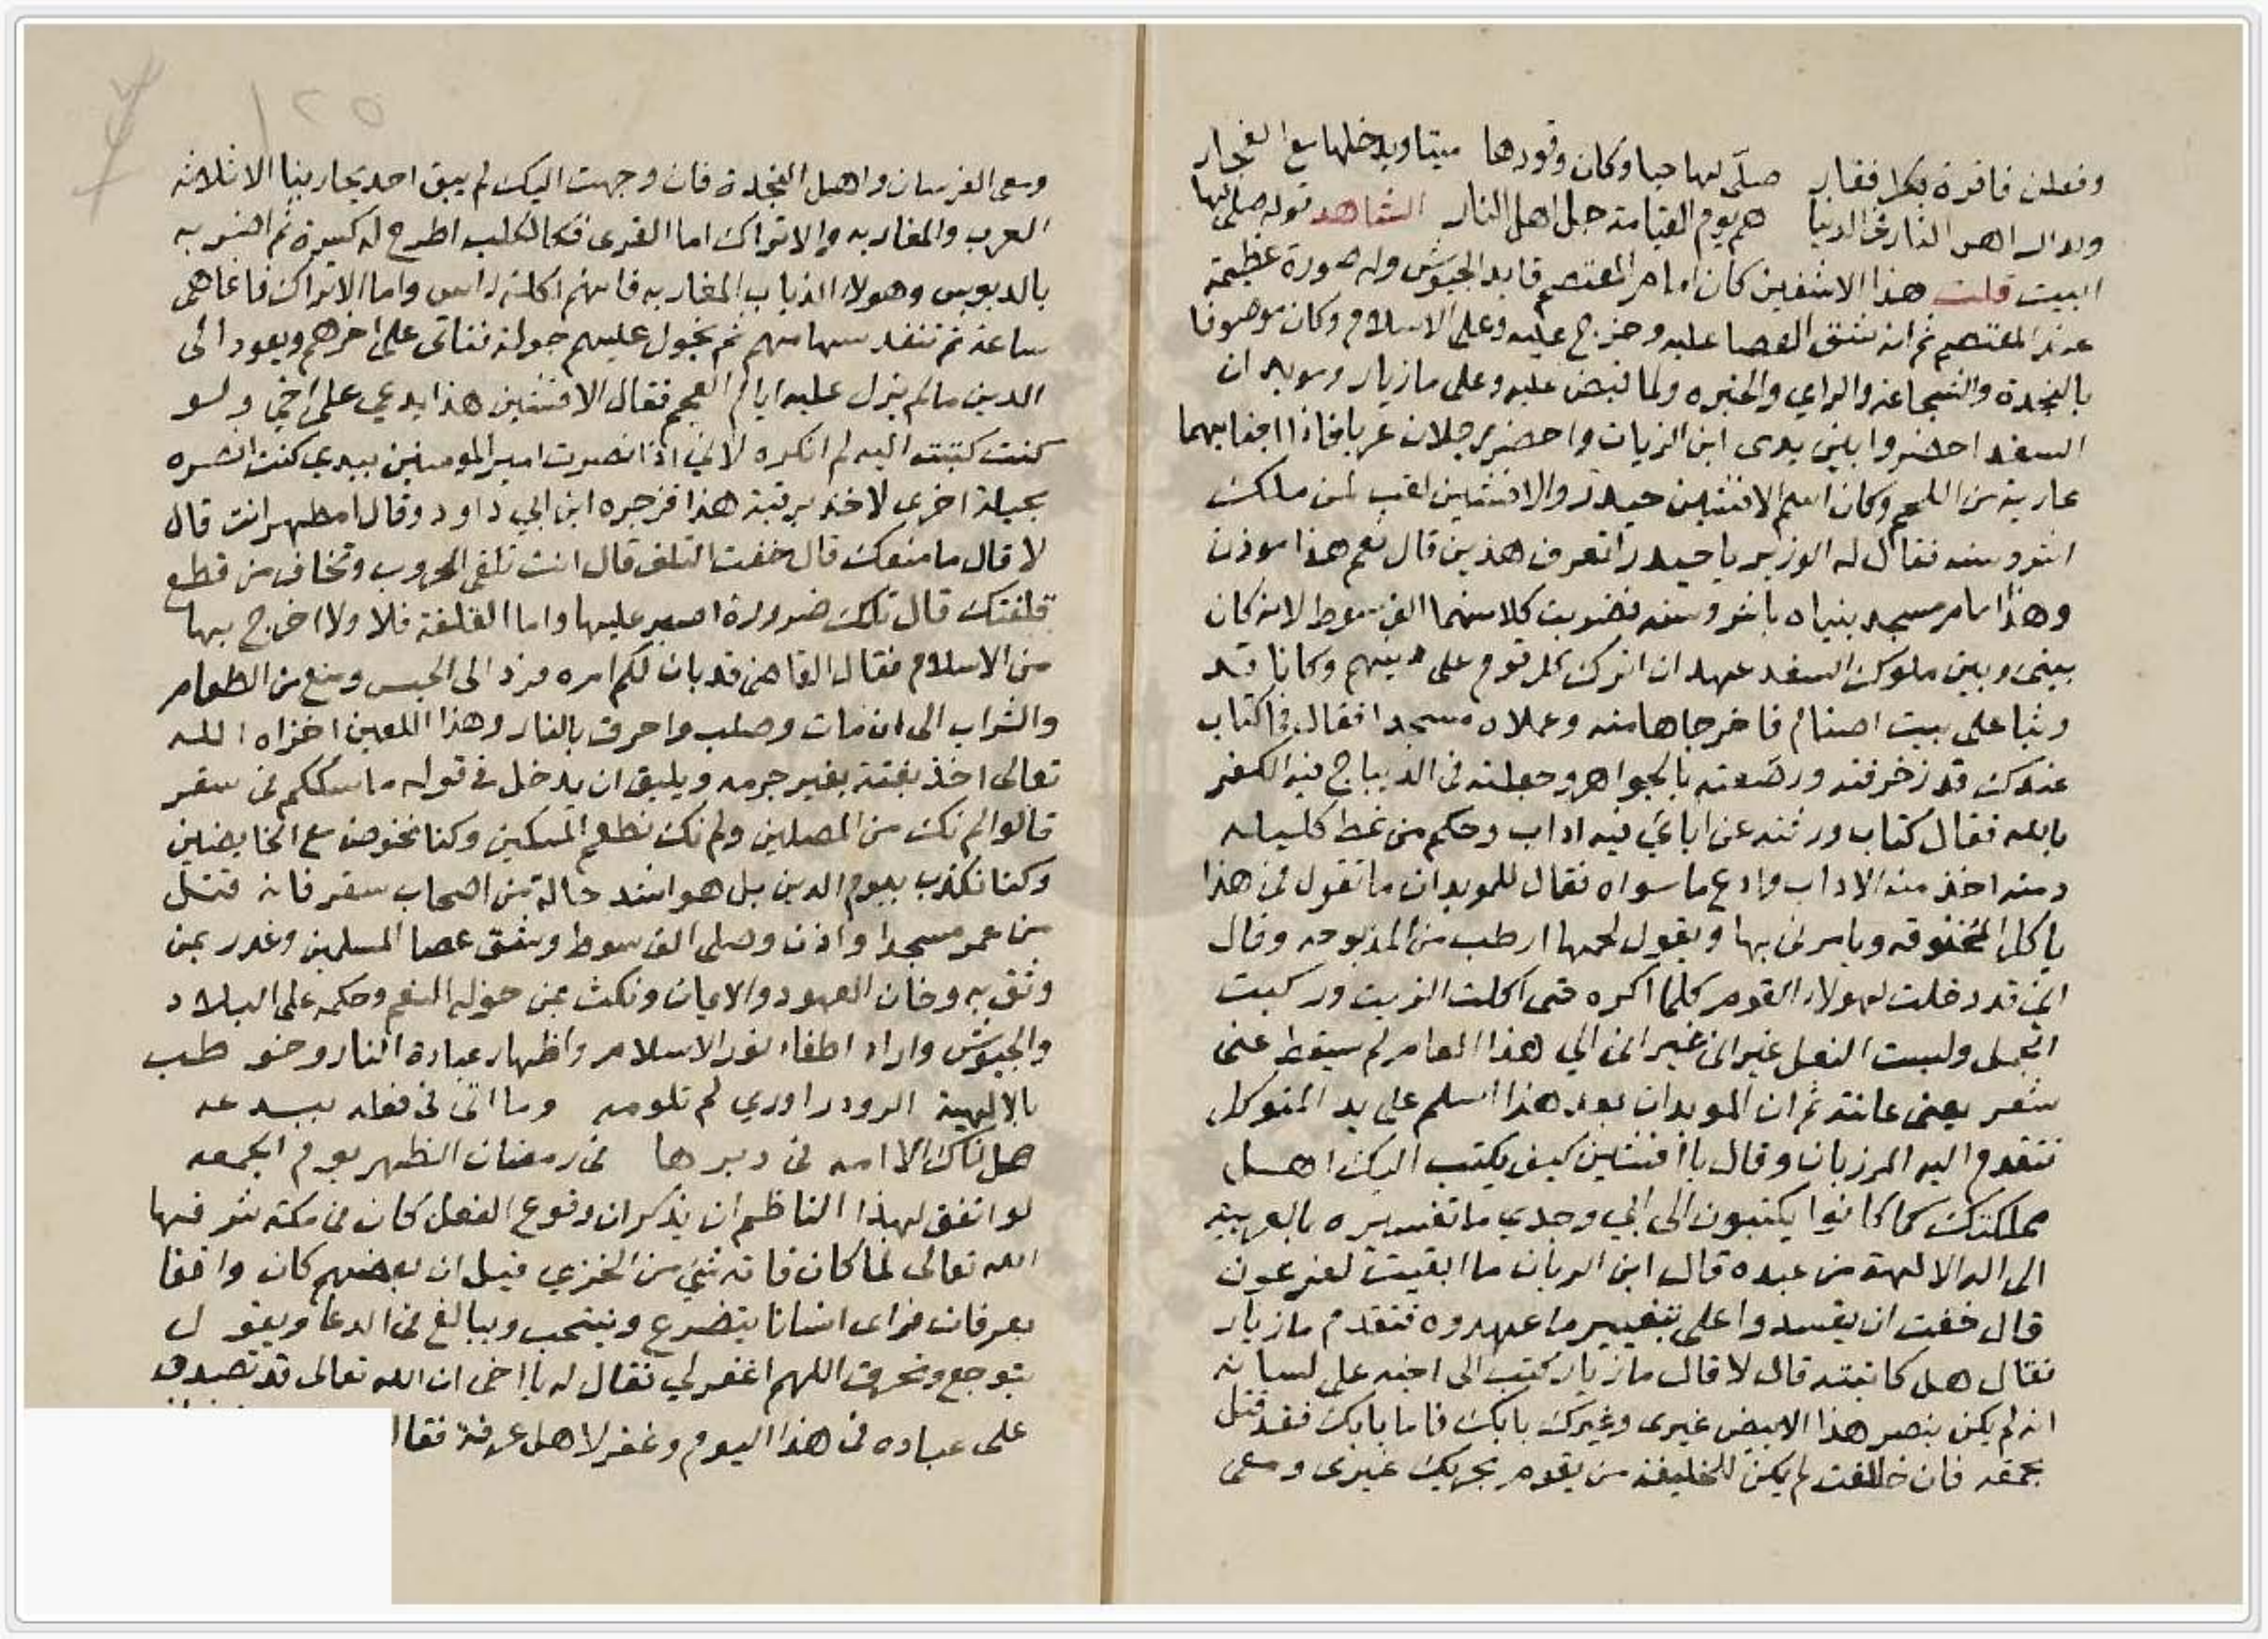 وفعلن فاقرة بكل فقار صلى لها حيا وكان وقودها ميتا ويدخلها مع الفجار
اهل النار في الدنيا هم يوم القيامة جل اهل النار الشاهد قوله صلى لها
البيت قلت هذا الافشين كان امام المعتصم قايد الجيوش وله صورة عظيمة
عند المعتصم ثم انه شق العصا عليه وخرج عليه وعلى الاسلام وكان موصوفا
بالنجدة والشجاعة والراي والخبره ولما قبض عليه وعلى مازيار وموبدان
السغد احضروا بين يدى ابن الزيات واحضر رجلان عريا فاذا اجنابهما
عارية من اللحم وكان اسم الافشين حيدر والافشين لقب لمن ملك
اشروسنه فقال له الوزير يا حيدر اتعرف هذين قال نعم هذا موذن
وهذا امام مسجد بنياه باشروسنه فضربت كلا منهما الف سوط لانه كان
بينى وبين ملوك السغد عهد ان اترك كل قوم على دينهم وكانا قد
وثبا على بيت اصنام فاخرجاها منه وعملاه مسجدا فقال فما كتاب
عندك قد زخرفته ورصعته بالجواهر وجعلته في الديباج فيه الكفر
بالله فقال كتاب ورثته عن اباءي فيه اداب وحكم من نمط كليله
ودمنه اخذ منه الاداب وادع ما سواه فقال للموبدان ما تقول في هذا
ياكل المخنوقه ويامرني بها ويقول لحمها ارطب من المذبوحه وقال
اني قد دخلت لهولاء القوم كلما اكره حتى اكلت الزيت وركبت
الجمل ولبست النعل غير اني الى هذا العام لم يسقط عنى
شعر يعنى عانته ثم ان الموبدان بعد هذا اسلم على يد المتوكل
فتقدم اليه المرزبان وقال يا افشين كيف يكتب اليك اهل
مملكتك كما كانوا يكتبون الى ابي وجدي ما تفسيره بالعربية
الى اله الالهة من عبده قال ابن الزيات ما ابقيت لفرعون
قال خفت ان يفسدوا على بتغيير ما عهدوه فتقدم مازيار
فقال هل كاتبته قال لا قال مازيار كتب الى اخيه على لسانه
انه لم يكن ينصر هذا الابيض غيرى وغيرك بابك فاما بابك فقد قتل
بحمقه فان خالفت لم يكن للخليفه من يقوم بحربك غيرى ومعى
ومعى الفرسان واهل النجدة فان وجهت اليك لم يبق احد يحاربنا الا ثلاثه
العرب والمغاربه والاتراك اما العرى فكالكلب اطرح له كسرة ثم اضربه
بالدبوس وهولاء الذباب المغاربه فانهم اكلة راس واما الاتراك فانما هى
ساعة ثم تنفد سهامهم ثم نجول عليهم جولة فناتى على اخرهم ويعود الى
الدين ما لم يزل عليه ايام العجم فقال الافشين هذا يدعي على اخي ولو
كنت كتبته اليه لم انكره لاني اذا نصرت امير المومنين بيدي كنت انصره
بحيلة اخرى لاخذ برقبة هذا فزجره ابن ابي داود وقال امطهر انت قال
لا قال ما منعك قال خفت التلف قال انت تلقى الحروب وتخاف من قطع
قلفتك قال تلك ضرورة اصبر عليها واما القلفة فلا ولا اخرج بها
من الاسلام فقال القاضى قد بان لكم امره فرد الى الحبس ومنع من الطعام
والشراب الى ان مات وصلب واحرق بالنار وهذا اللعين اخزاه الله
تعالى اخذ بغتة بغير جرمه ويليق ان يدخل في قوله ما سلككم في سقر
قالوا لم نك من المصلين ولم نك نطعم المسكين وكنا نخوض مع الخايضين
وكنا نكذب بيوم الدين بل هو اشد حالة من اصحاب سقر فانه قتل
من عمر مسجدا واذن وصلى الف سوط وشق عصا المسلمين وغدر بمن
وثق به وخان العهود والايمان ونكث بمن خوله النعم وحكمه على البلاد
والجيوش واراد اطفاء نور الاسلام واظهار عبادة النار وخوطب
بالالهية الروذراوري لم تلومه وما اتى في فعله ببدعه
هل ناك الا امه في دبرها في رمضان الظهر يوم الجمعه
لو اتفق لهذا الناظم ان يذكر ان وقوع الفعل كان في مكة شرفها
الله تعالى لما كان فاته شي من الخزي قيل ان بعضهم كان واقفا
بعرفات فراى انسانا يتضرع وينتحب ويبالغ في الدعا ويقول
بتوجع وتحرق اللهم اغفر لي فقال له يا اخى ان الله تعالى قد تصدق
على عباده في هذا اليوم وغفر لاهل عرفة فقال